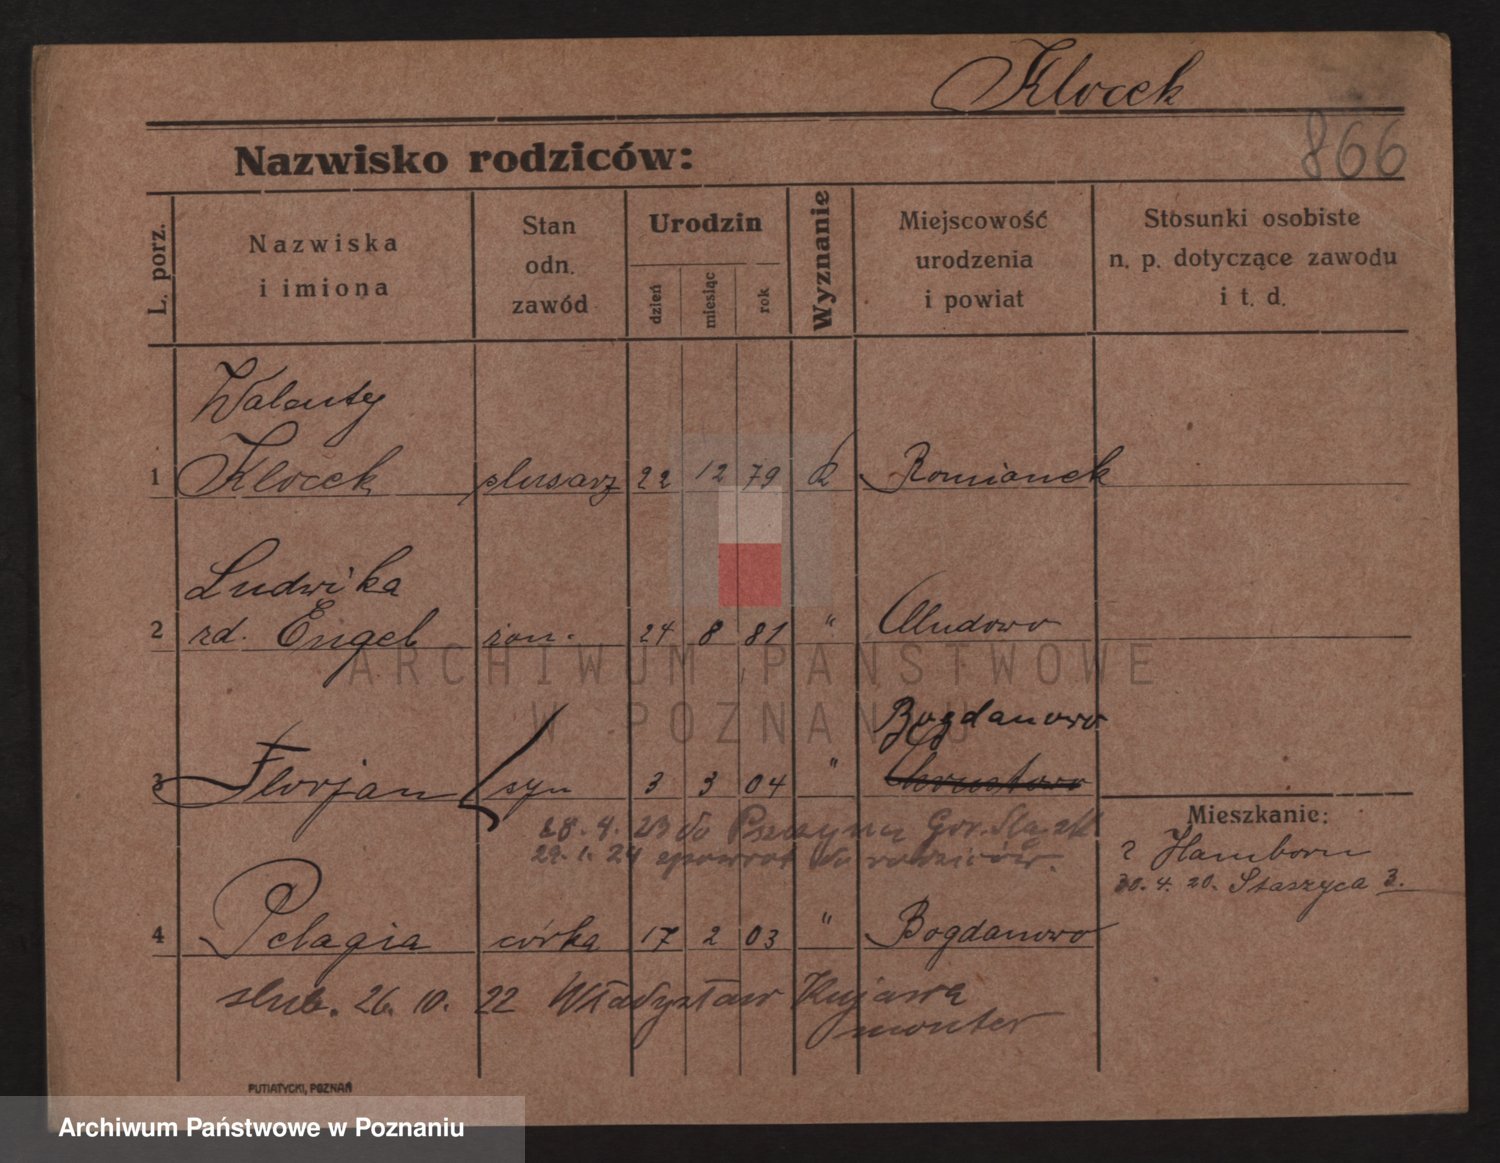 Klocek
866
Nazwisko rodziców:
L. porz.
Nazwiska
i imiona
Stan
odn.
zawód
Urodzin
dzień
miesiąc
rok
Wyznanie
Miejscowość
urodzenia
i powiat
Stosunki osobiste
n. p. dotyczące zawodu
i t. d.
Walenty
1 Klocek ślusarz 22 12 79 k Romianek
Ludwika
2 rd. Engel żon. 24 8 81 " Mudowo
Bogdanowo
3 Florjan syn 3 3 04 "
28. 4. 23 do Pszczyny Gór. Śla.
29. 1. 24 zpowrot do rodziców.
Mieszkanie:
z Hamborn
30. 4. 20. Staszyca 3.
4 Pelagia córka 17 2 03 " Bogdanowo
slub. 26. 10. 22 Władysław Kujawa
monter
PUTIATYCKI, POZNAŃ
ARCHIWUM PAŃSTWOWE
W POZNANIU
Archiwum Państwowe w Poznaniu